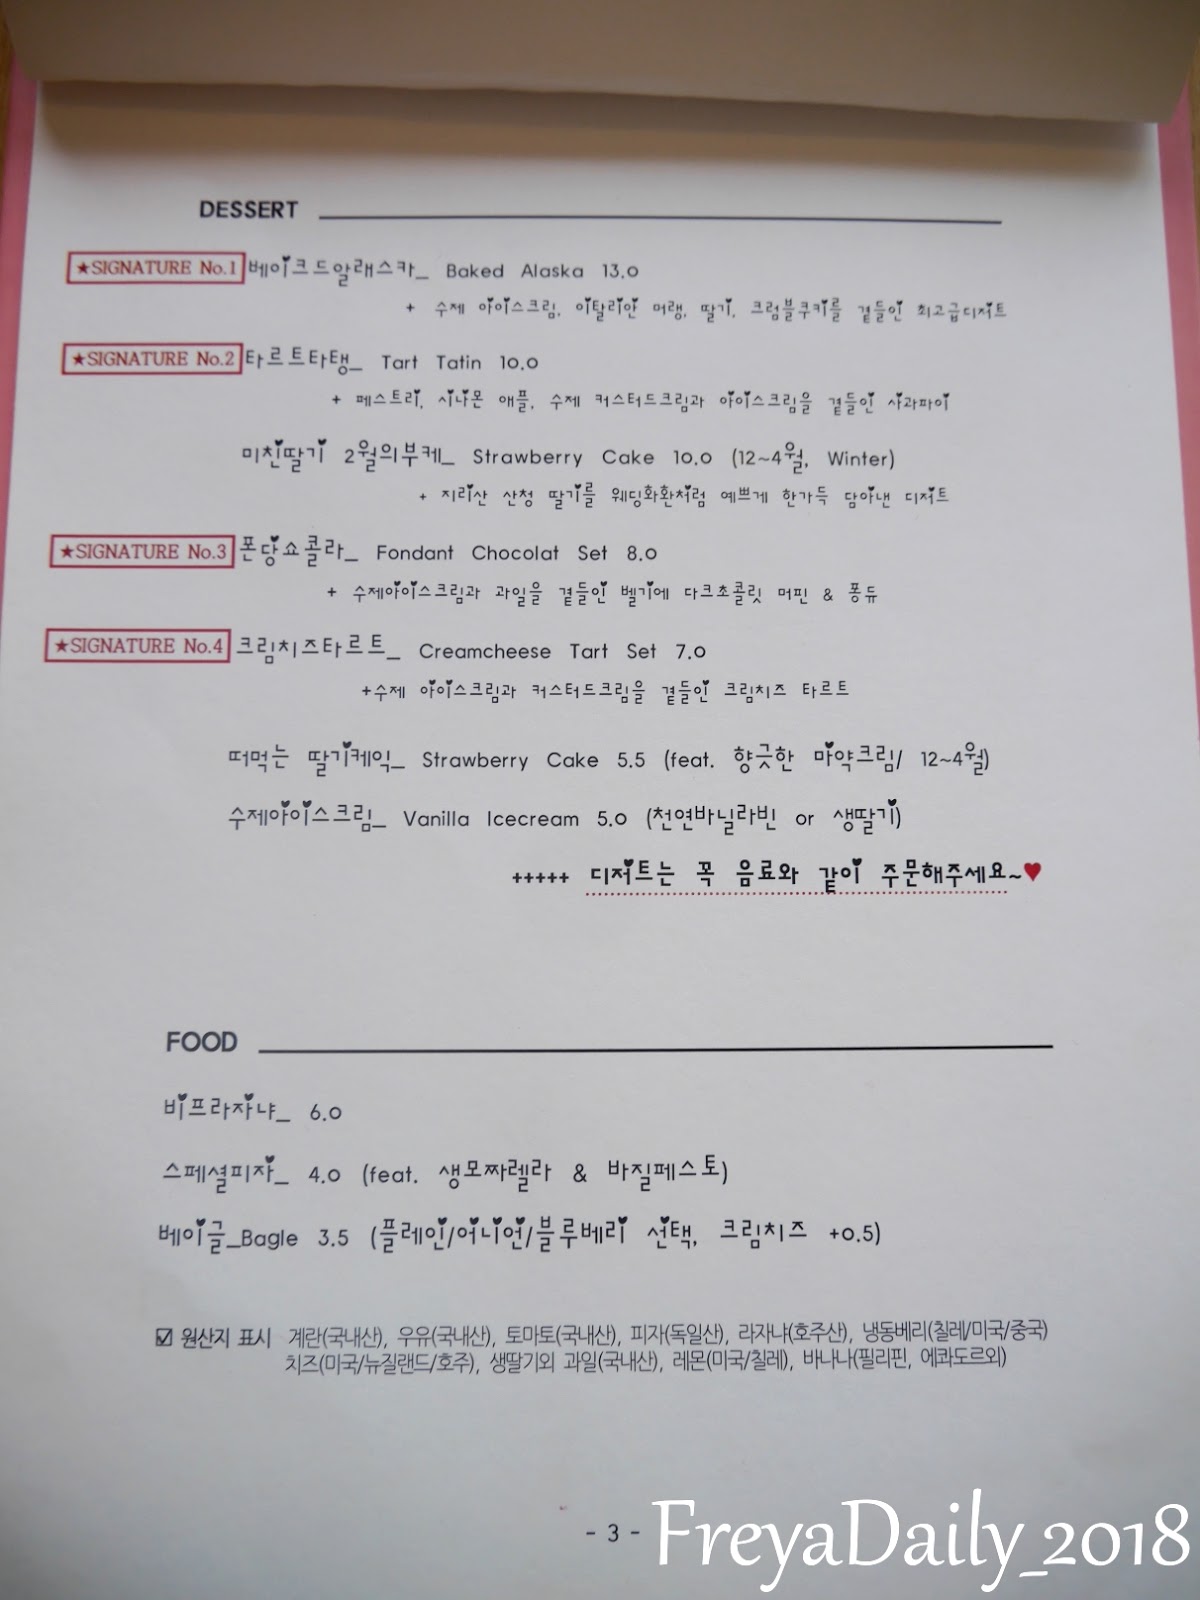 DESSERT
★SIGNATURE No.1 베이크드알래스카_ Baked Alaska 13.0
+ 수제 아이스크림, 이탈리안 머랭, 딸기, 크럼블쿠키를 곁들인 최고급디저트
★SIGNATURE No.2 타르트타탱_ Tart Tatin 10.0
+ 페스트리, 시나몬 애플, 수제 커스터드크림과 아이스크림을 곁들인 사과파이
미친딸기 2월의부케_ Strawberry Cake 10.0 (12~4월, Winter)
+ 지리산 산청 딸기를 웨딩화환처럼 예쁘게 한가득 담아낸 디저트
★SIGNATURE No.3 폰당쇼콜라_ Fondant Chocolat Set 8.0
+ 수제아이스크림과 과일을 곁들인 벨기에 다크초콜릿 머핀 & 퐁듀
★SIGNATURE No.4 크림치즈타르트_ Creamcheese Tart Set 7.0
+수제 아이스크림과 커스터드크림을 곁들인 크림치즈 타르트
떠먹는 딸기케익_ Strawberry Cake 5.5 (feat. 향긋한 마약크림/ 12~4월)
수제아이스크림_ Vanilla Icecream 5.0 (천연바닐라빈 or 생딸기)
+++++ 디저트는 꼭 음료와 같이 주문해주세요~♥
FOOD
비프라자냐_ 6.0
스페셜피자_ 4.0 (feat. 생모짜렐라 & 바질페스토)
베이글_Bagle 3.5 (플레인/어니언/블루베리 선택, 크림치즈 +0.5)
☑ 원산지 표시 계란(국내산), 우유(국내산), 토마토(국내산), 피자(독일산), 라자냐(호주산), 냉동베리(칠레/미국/중국)
치즈(미국/뉴질랜드/호주), 생딸기외 과일(국내산), 레몬(미국/칠레), 바나나(필리핀, 에콰도르외)
- 3 -
FreyaDaily_2018